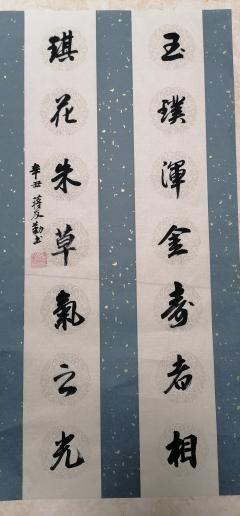 玉璞渾金壽者相
琪花朱草氣之光
辛丑 蔣友勤书